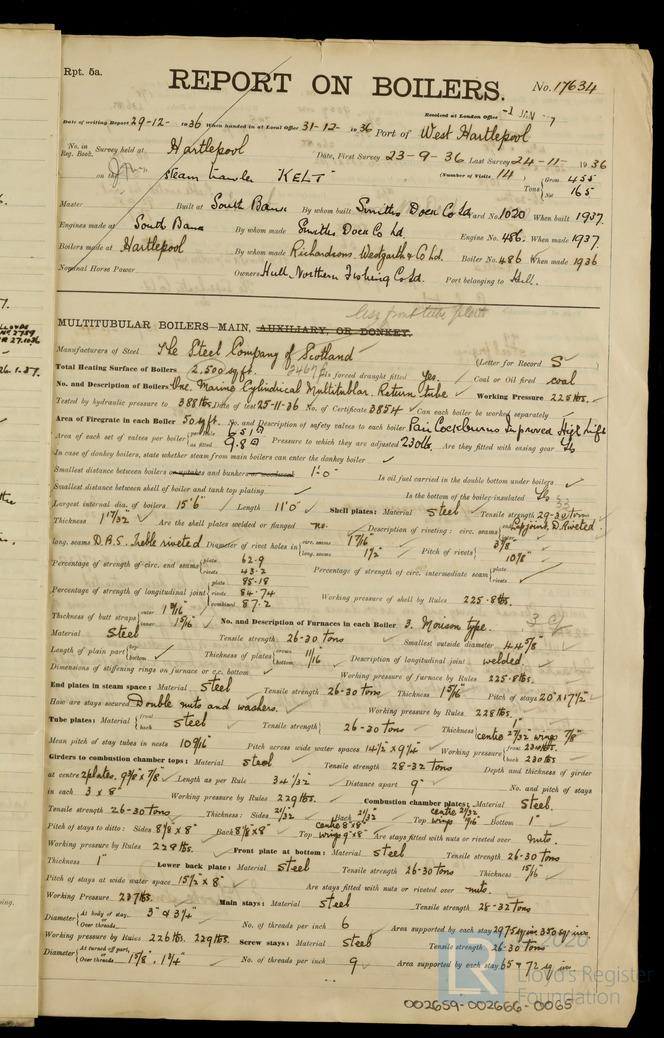 Rpt. 5a.
REPORT ON BOILERS.
No. 17634
Received at London Office -1 JAN
Date of writing Report 29-12-1936 When handed in at Local Office 31-12-1936 Port of West Hartlepool
No. in Reg. Book. Survey held at Hartlepool Date, First Survey 23-9-36 Last Survey 24-11-1936
on the steam trawler KELT (Number of Visits 14) Tons Gross 455 Net 165
Master Built at South Bank By whom built Smiths Dock Co Ld Yard No. 1020 When built 1937
Engines made at South Bank By whom made Smiths Dock Co Ld. Engine No. 486 When made 1937
Boilers made at Hartlepool By whom made Richardsons Westgarth & Co Ld. Boiler No. 486 When made 1936
Nominal Horse Power Owners Hull Northern Fishing Co Ld. Port belonging to Hull.
less front tube plate
MULTITUBULAR BOILERS—MAIN, AUXILIARY, OR DONKEY.
Manufacturers of Steel The Steel Company of Scotland (Letter for Record S)
Total Heating Surface of Boilers 2,500 sq ft. 2467 Is forced draught fitted Yes. Coal or Oil fired coal
No. and Description of Boilers One. Marine Cylindrical Multitublar. Return tube Working Pressure 225 lbs.
Tested by hydraulic pressure to 388 lbs. Date of test 25-11-36 No. of Certificate 3854 Can each boiler be worked separately
Area of Firegrate in each Boiler 50 sq ft. No. and Description of safety valves to each boiler Pair Cockburns Improved High Lift
Area of each set of valves per boiler per Rule 6.51 as fitted 9.8 Pressure to which they are adjusted 230 lbs. Are they fitted with easing gear
In case of donkey boilers, state whether steam from main boilers can enter the donkey boiler
Smallest distance between boilers or uptakes and bunkers or woodwork 1'-0" Is oil fuel carried in the double bottom under boilers
Smallest distance between shell of boiler and tank top plating Is the bottom of the boiler insulated
Largest internal dia. of boilers 15'6" Length 11'0" Shell plates: Material steel Tensile strength 29-33 tons
Thickness 1 17/32 Are the shell plates welded or flanged no. Description of riveting: circ. seams Lap joint, D. Riveted
long. seams D.B.S. Treble riveted Diameter of rivet holes in circ. seams 1 7/16 long. seams 1 1/2 Pitch of rivets 3 7/8 10 7/8"
Percentage of strength of circ. end seams plate 62.9 rivets 43.2 Percentage of strength of circ. intermediate seam plate rivets
Percentage of strength of longitudinal joint plate 85.18 rivets 84.74 combined 87.2 Working pressure of shell by Rules 225.8 lbs.
Thickness of butt straps outer 1 3/16 inner 1 5/16 No. and Description of Furnaces in each Boiler 3. Morison type.
Material steel Tensile strength 26-30 tons Smallest outside diameter 44 5/8"
Length of plain part top bottom Thickness of plates crown bottom 11/16 Description of longitudinal joint welded.
Dimensions of stiffening rings on furnace or c.c. bottom Working pressure of furnace by Rules 225.8 lbs.
End plates in steam space: Material steel Tensile strength 26-30 tons Thickness 1 5/16 Pitch of stays 20" x 17 1/2"
How are stays secured Double nuts and washers. Working pressure by Rules 228 lbs.
Tube plates: Material front back steel Tensile strength 26-30 tons Thickness 1" centre 27/32 wings 7/8"
Mean pitch of stay tubes in nests 10 9/16 Pitch across wide water spaces 14 1/2 x 9 1/4 Working pressure front 230 lbs. back 230 lbs
Girders to combustion chamber tops: Material steel Tensile strength 28-32 tons Depth and thickness of girder
at centre 2 plates. 9 3/8 x 7/8 Length as per Rule 34 1/32 Distance apart 9" No. and pitch of stays
in each 3 x 8" Working pressure by Rules 229 lbs. Combustion chamber plates: Material steel.
Tensile strength 26-30 tons Thickness: Sides 21/32 Back 21/32 Top centre 21/32 wings 11/16 Bottom 1"
Pitch of stays to ditto: Sides 8 1/8 x 8" Back 8 1/8 x 8" Top centre 8" x 8" wings 9" x 8" Are stays fitted with nuts or riveted over nuts.
Working pressure by Rules 228 lbs. Front plate at bottom: Material steel Tensile strength 26-30 tons
Thickness 1" Lower back plate: Material steel Tensile strength 26-30 tons Thickness 15/16
Pitch of stays at wide water space 15 1/2 x 8" Are stays fitted with nuts or riveted over nuts.
Working Pressure 237 lbs. Main stays: Material steel Tensile strength 28-32 tons
Diameter At body of stay, or Over threads 3" & 3 1/4" No. of threads per inch 6 Area supported by each stay 297.5 sq in 350 sq ins
Working pressure by Rules 226 lbs. 229 lbs. Screw stays: Material steel Tensile strength 26-30 tons
Diameter At turned off part, or Over threads 1 5/8", 1 3/4" No. of threads per inch 9 Area supported by each stay 65 & 72 sq ins
2020
LR
Lloyd's Register
Foundation
002659-002666-0065